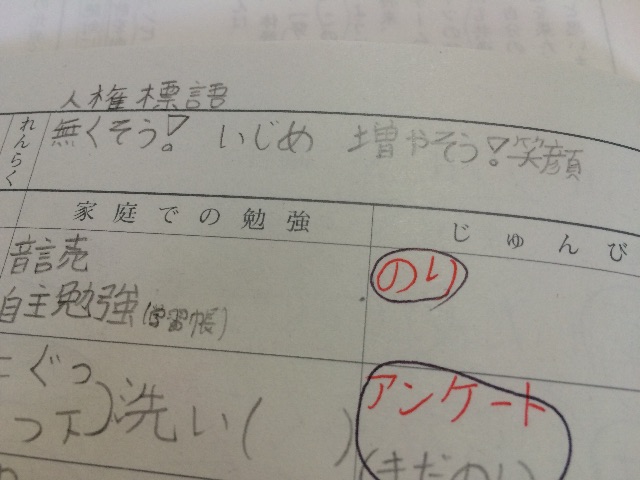 人権標語
れんらく
無くそう! いじめ 増やそう!笑顔
家庭での勉強
じゅんび
音読
のり
自主勉強(学習帳)
ぐつ
つ下)洗い( )
アンケート
(まだの